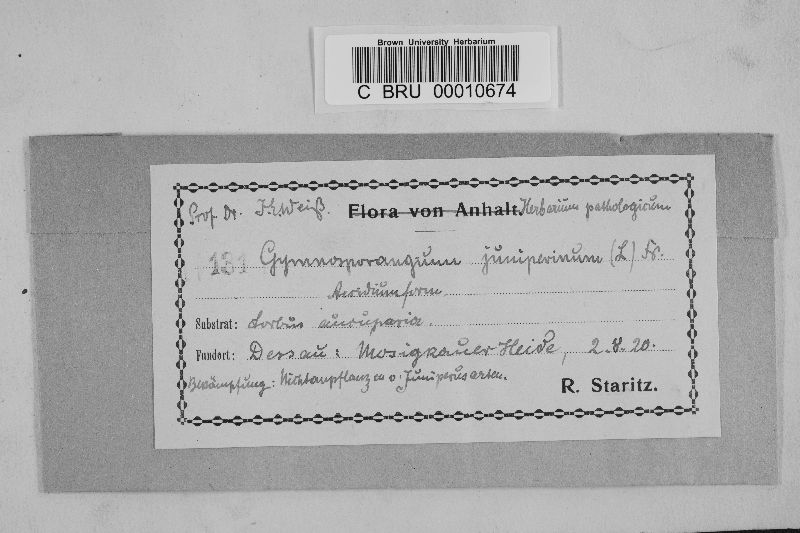 Brown University Herbarium
C BRU 00010674
Prof. Dr. Weiß. Flora von Anhalt. Herbarium pathologicum
131 Gymnosporangium juniperinum (L) Fr.
Aecidiumform
Substrat: Sorbus aucuparia.
Fundort: Dessau: Mosigkauer Heide, 2.8.20.
Bekämpfung: Nichtanpflanzen v. Juniperusarten.
R. Staritz.